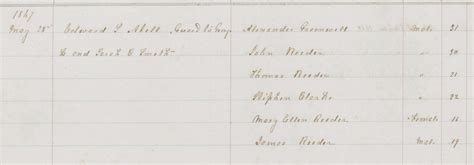 1867
May 28th Edward L Abell Guard to Geo Alexander Greenwell Male 21
E and Sarah E Smith John Reeder " 20
Thomas Reeder " 21
Stephen Clarke " 22
Mary Ellen Reeder Female 18
James Reeder Male 19